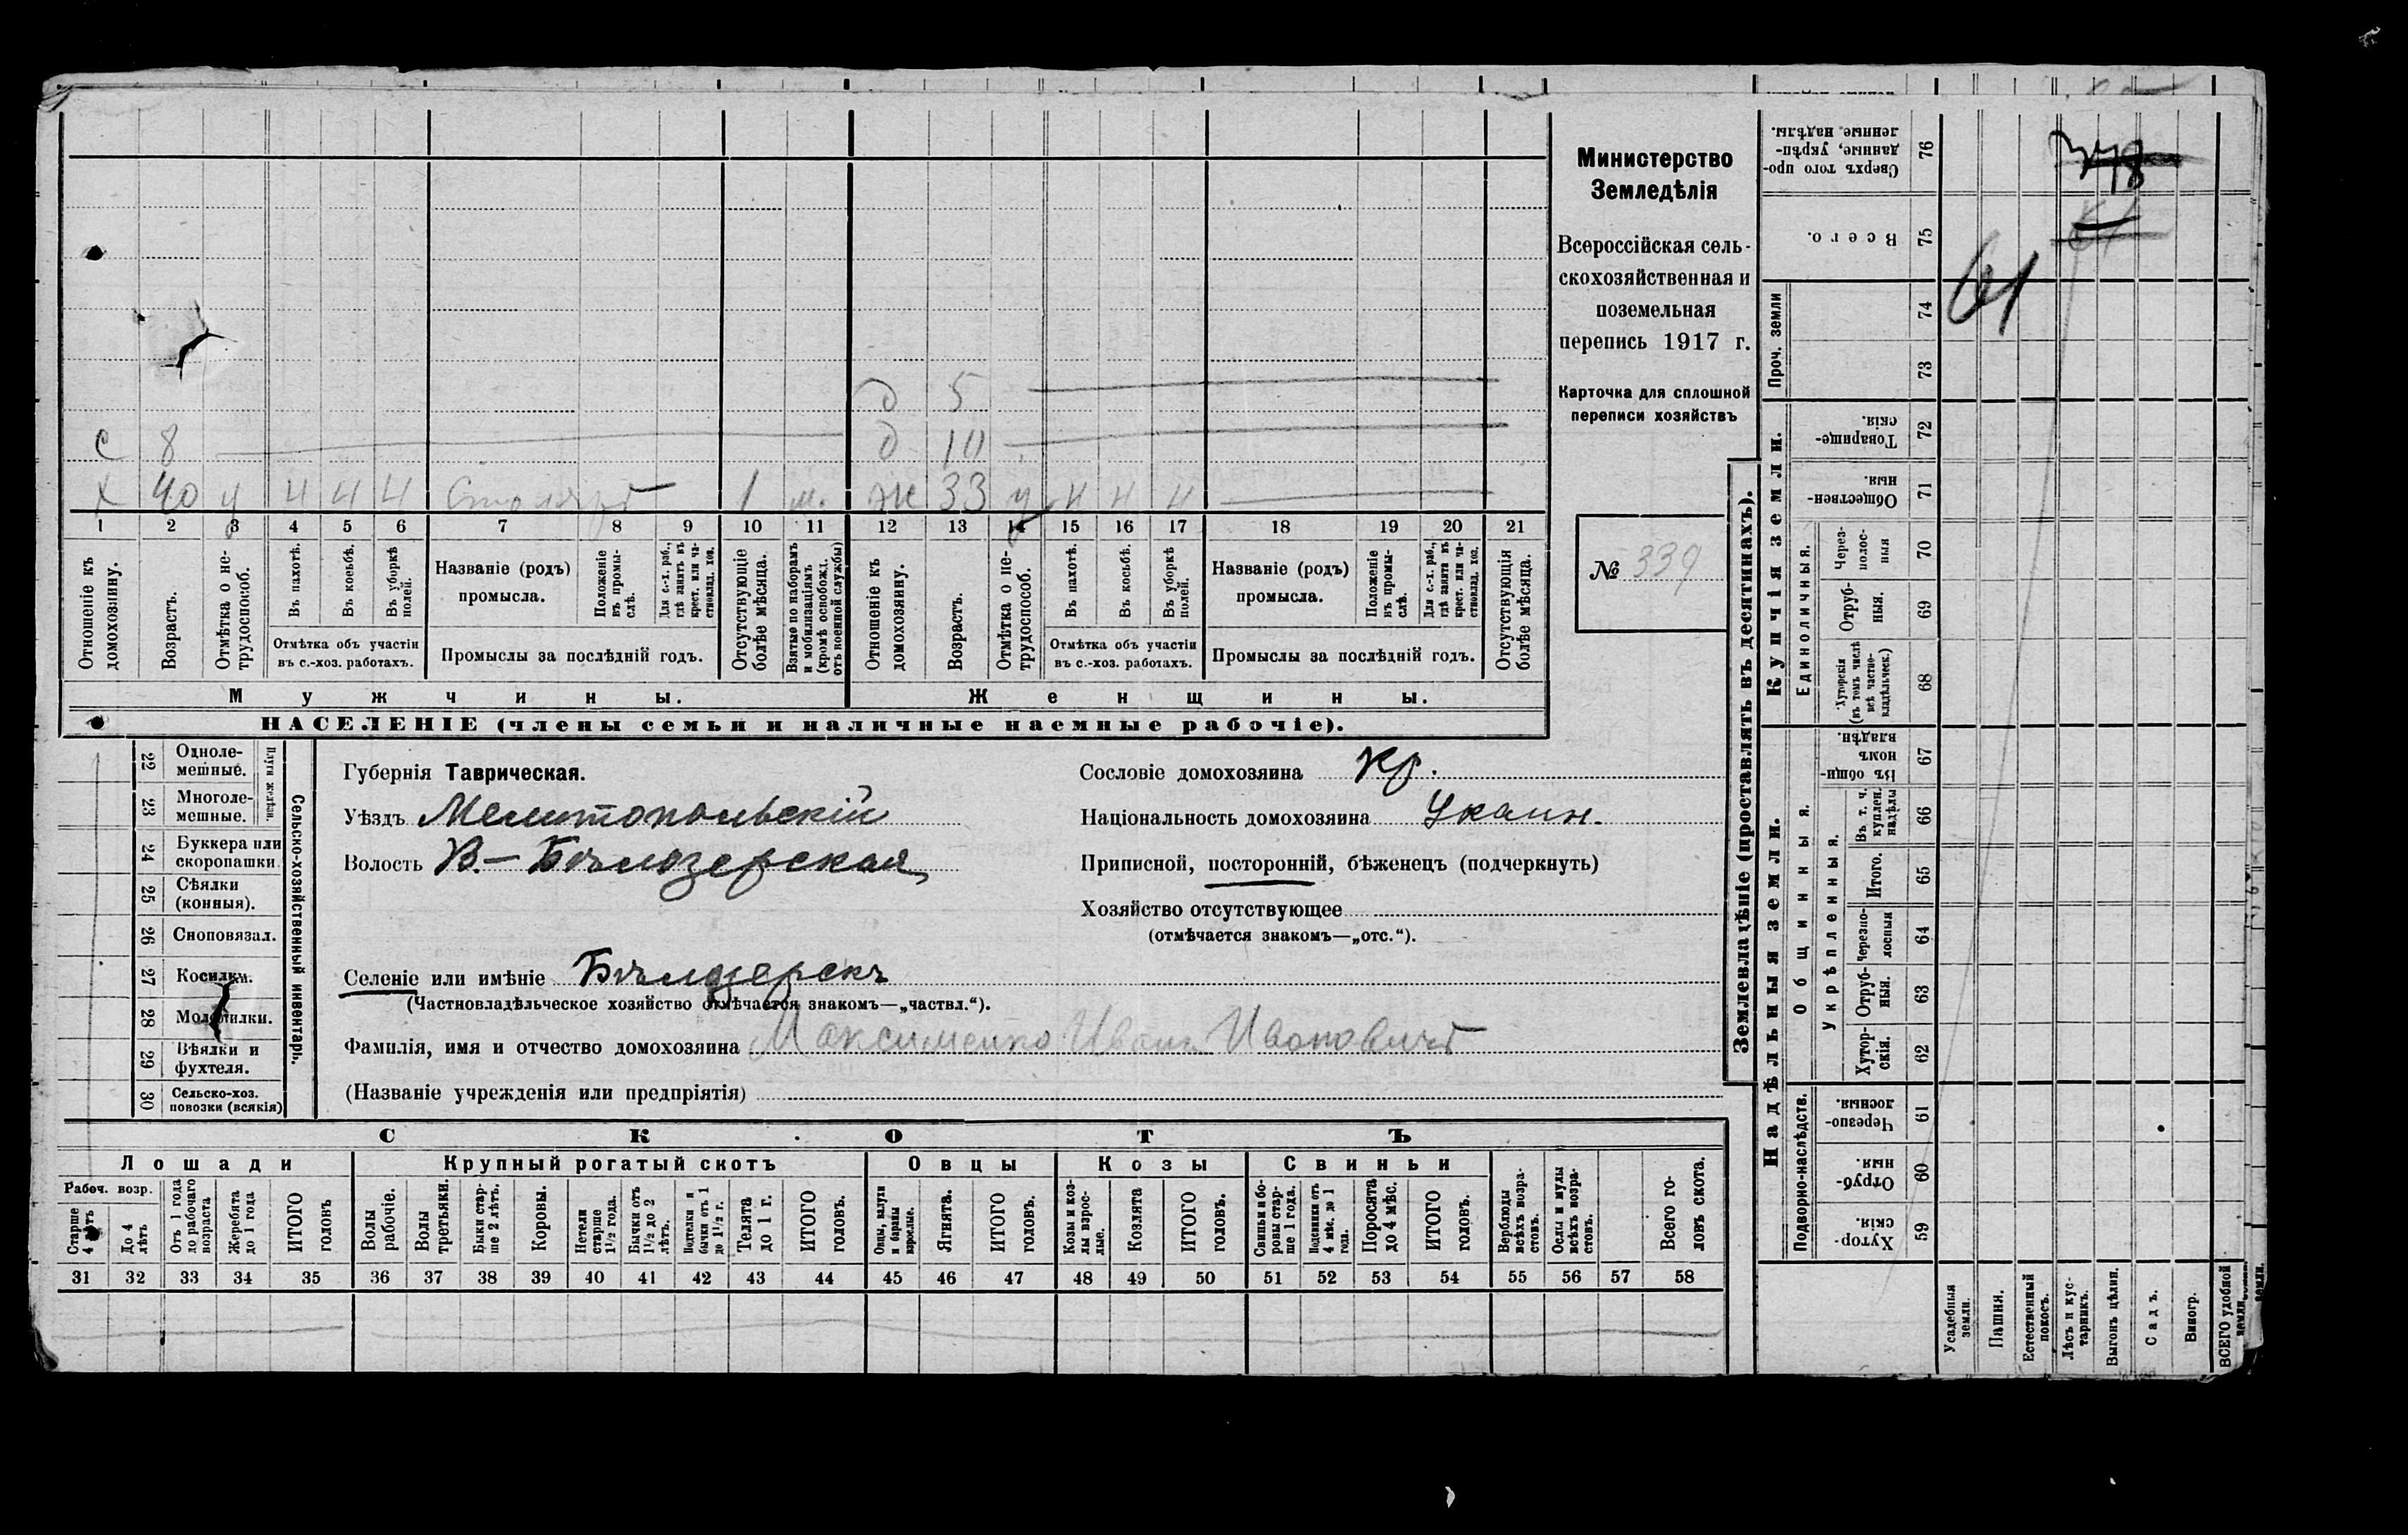 Министерство
Земледѣлія
Всероссійская сель-
скохозяйственная и
поземельная
перепись 1917 г.
Карточка для сплошной
переписи хозяйствъ
№ 339
д 5
с 8 д 10
х 40 у н н н Столяръ 1 м. ж 33 у н н н
1 2 3 4 5 6 7 8 9 10 11 12 13 14 15 16 17 18 19 20 21
Отношеніе къ домохозяину.
Возрастъ.
Отмѣтка о не-трудоспособ.
Въ пахотѣ.
Въ косьбѣ.
Въ уборкѣ полей.
Отмѣтка объ участіи
въ с.-хоз. работахъ.
Названіе (родъ)
промысла.
Положеніе въ промы-слѣ.
Для с.-х. раб., гдѣ занятъ въ крест. или ча-стновлад. хоз.
Промыслы за послѣдній годъ.
Отсутствующіе болѣе мѣсяца.
Взятые по наборамъ и мобилизаціямъ (кромѣ освобожд. отъ военной службы)
Отношеніе къ домохозяину.
Возрастъ.
Отмѣтка о не-трудоспособ.
Въ пахотѣ.
Въ косьбѣ.
Въ уборкѣ полей.
Отмѣтка объ участіи
въ с.-хоз. работахъ.
Названіе (родъ)
промысла.
Положеніе въ промы-слѣ.
Для с.-х. раб., гдѣ занята въ крест. или ча-стновлад. хоз.
Промыслы за послѣдній годъ.
Отсутствующія болѣе мѣсяца.
Мужчины. Женщины.
НАСЕЛЕНІЕ (члены семьи и наличные наемные рабочіе).
22 Одноле-мешные.
23 Многоле-мешные.
Плуги желѣзн.
24 Буккера или скоропашки
25 Сѣялки (конныя).
26 Сноповязал.
27 Косилки.
28 Молотилки.
29 Вѣялки и фухтеля.
30 Сельско-хоз. повозки (всякія)
Сельско-хозяйственный инвентарь.
Губернія Таврическая.
Уѣздъ Мелитопольскій
Волость В.-Бѣлозерская
Селеніе или имѣніе Бѣлозерскъ
(Частновладѣльческое хозяйство отмѣчается знакомъ—„частвл.“).
Фамилія, имя и отчество домохозяина Максименко Иванъ Ивановичъ
(Названіе учрежденія или предпріятія)
Сословіе домохозяина Кр.
Національность домохозяина Украин.
Приписной, посторонній, бѣженецъ (подчеркнуть)
Хозяйство отсутствующее
(отмѣчается знакомъ—„отс.“).
СКОТЪ
Лошади Крупный рогатый скотъ Овцы Козы Свиньи
Рабоч. возр.
Старше 4 лѣтъ
До 4 лѣтъ
Отъ 1 года до рабочаго возраста
Жеребята до 1 года
ИТОГО головъ
Волы рабочіе.
Волы третьяки.
Быки стар-ше 2 лѣтъ.
Коровы.
Нетели старше 1½ года.
Бычки отъ 1½ до 2 лѣтъ.
Подтелки и бычки отъ 1 до 1½ г.
Телята до 1 г.
ИТОГО головъ.
Овцы, валухи и бараны взрослые.
Ягнята.
ИТОГО головъ.
Козы и коз-лы взрос-лые.
Козлята
ИТОГО головъ.
Свиньи и бо-ровы стар-ше 1 года.
Подсвинки отъ 4 мѣс. до 1 года.
Поросята до 4 мѣс.
ИТОГО головъ.
Верблюды всѣхъ возра-стовъ.
Ослы и мулы всѣхъ возра-стовъ.
Всего го-ловъ скота.
31 32 33 34 35 36 37 38 39 40 41 42 43 44 45 46 47 48 49 50 51 52 53 54 55 56 57 58
Землевладѣніе (проставлять въ десятинахъ).
Сверхъ того про-данные, укрѣп-ленные надѣлы. 76
Всего. 75
Проч. земли 74 73
Купчія земли.
Товарище-скія. 72
Обществен-ныя. 71
Единоличныя.
Через-полос-ныя 70
Отруб-ныя. 69
Хуторскія (въ томъ числѣ всѣ частно-владѣльческ.) 68
Надѣльныя земли.
Общинныя.
Въ общин-номъ владѣн. 67
Укрѣпленныя.
Въ т. ч. куплен. надѣлы 66
Итого. 65
Черезпо-лосныя 64
Отруб-ныя. 63
Хутор-скія. 62
Подворно-наслѣдств.
Черезпо-лосныя. 61
Отруб-ныя. 60
Хутор-скія. 59
Усадебныя земли.
Пашня.
Естественный покосъ.
Лѣсъ и кус-тарникъ.
Выгонъ цѣлин.
Садъ.
Виногр.
ВСЕГО удобной земли.
61